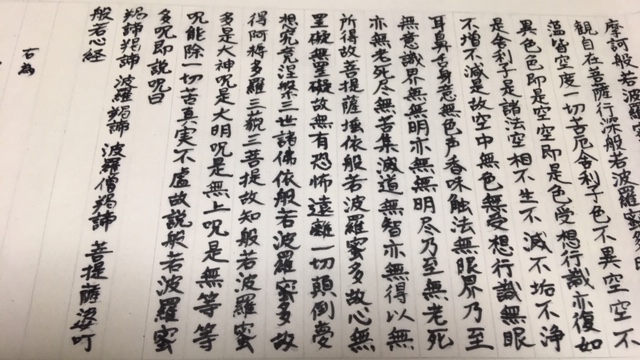 摩訶般若波羅
観自在菩薩行深般若波羅蜜
蘊皆空度一切苦厄舎利子色不異空空不
異色色即是空空即是色受想行識亦復如
是舎利子是諸法空相不生不滅不垢不浄
不増不減是故空中無色無受想行識無眼
耳鼻舌身意無色声香味触法無眼界乃至
無意識界無無明亦無無明尽乃至無老死
亦無老死尽無苦集滅道無智亦無得以無
所得故菩提薩埵依般若波羅蜜多故心無
罣礙無罣礙故無有恐怖遠離一切顛倒夢
想究竟涅槃三世諸佛依般若波羅蜜多故
得阿耨多羅三藐三菩提故知般若波羅蜜
多是大神呪是大明呪是無上呪是無等等
呪能除一切苦真実不虚故説般若波羅蜜
多呪即説呪曰
羯諦羯諦 波羅羯諦 波羅僧羯諦 菩提薩婆訶
般若心経
右為